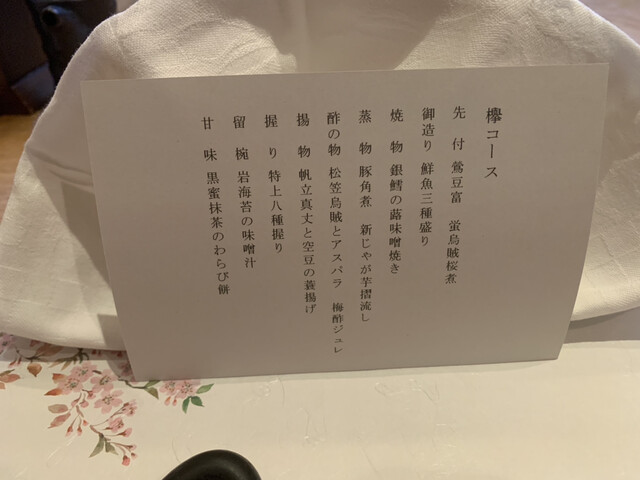 欅コース
先　付　鶯豆富　蛍烏賊桜煮
御造り　鮮魚三種盛り
焼　物　銀鱈の蕗味噌焼き
蒸　物　豚角煮　新じゃが芋摺流し
酢の物　松笠烏賊とアスパラ　梅酢ジュレ
揚　物　帆立真丈と空豆の蓑揚げ
握　り　特上八種握り
留　椀　岩海苔の味噌汁
甘　味　黒蜜抹茶のわらび餅